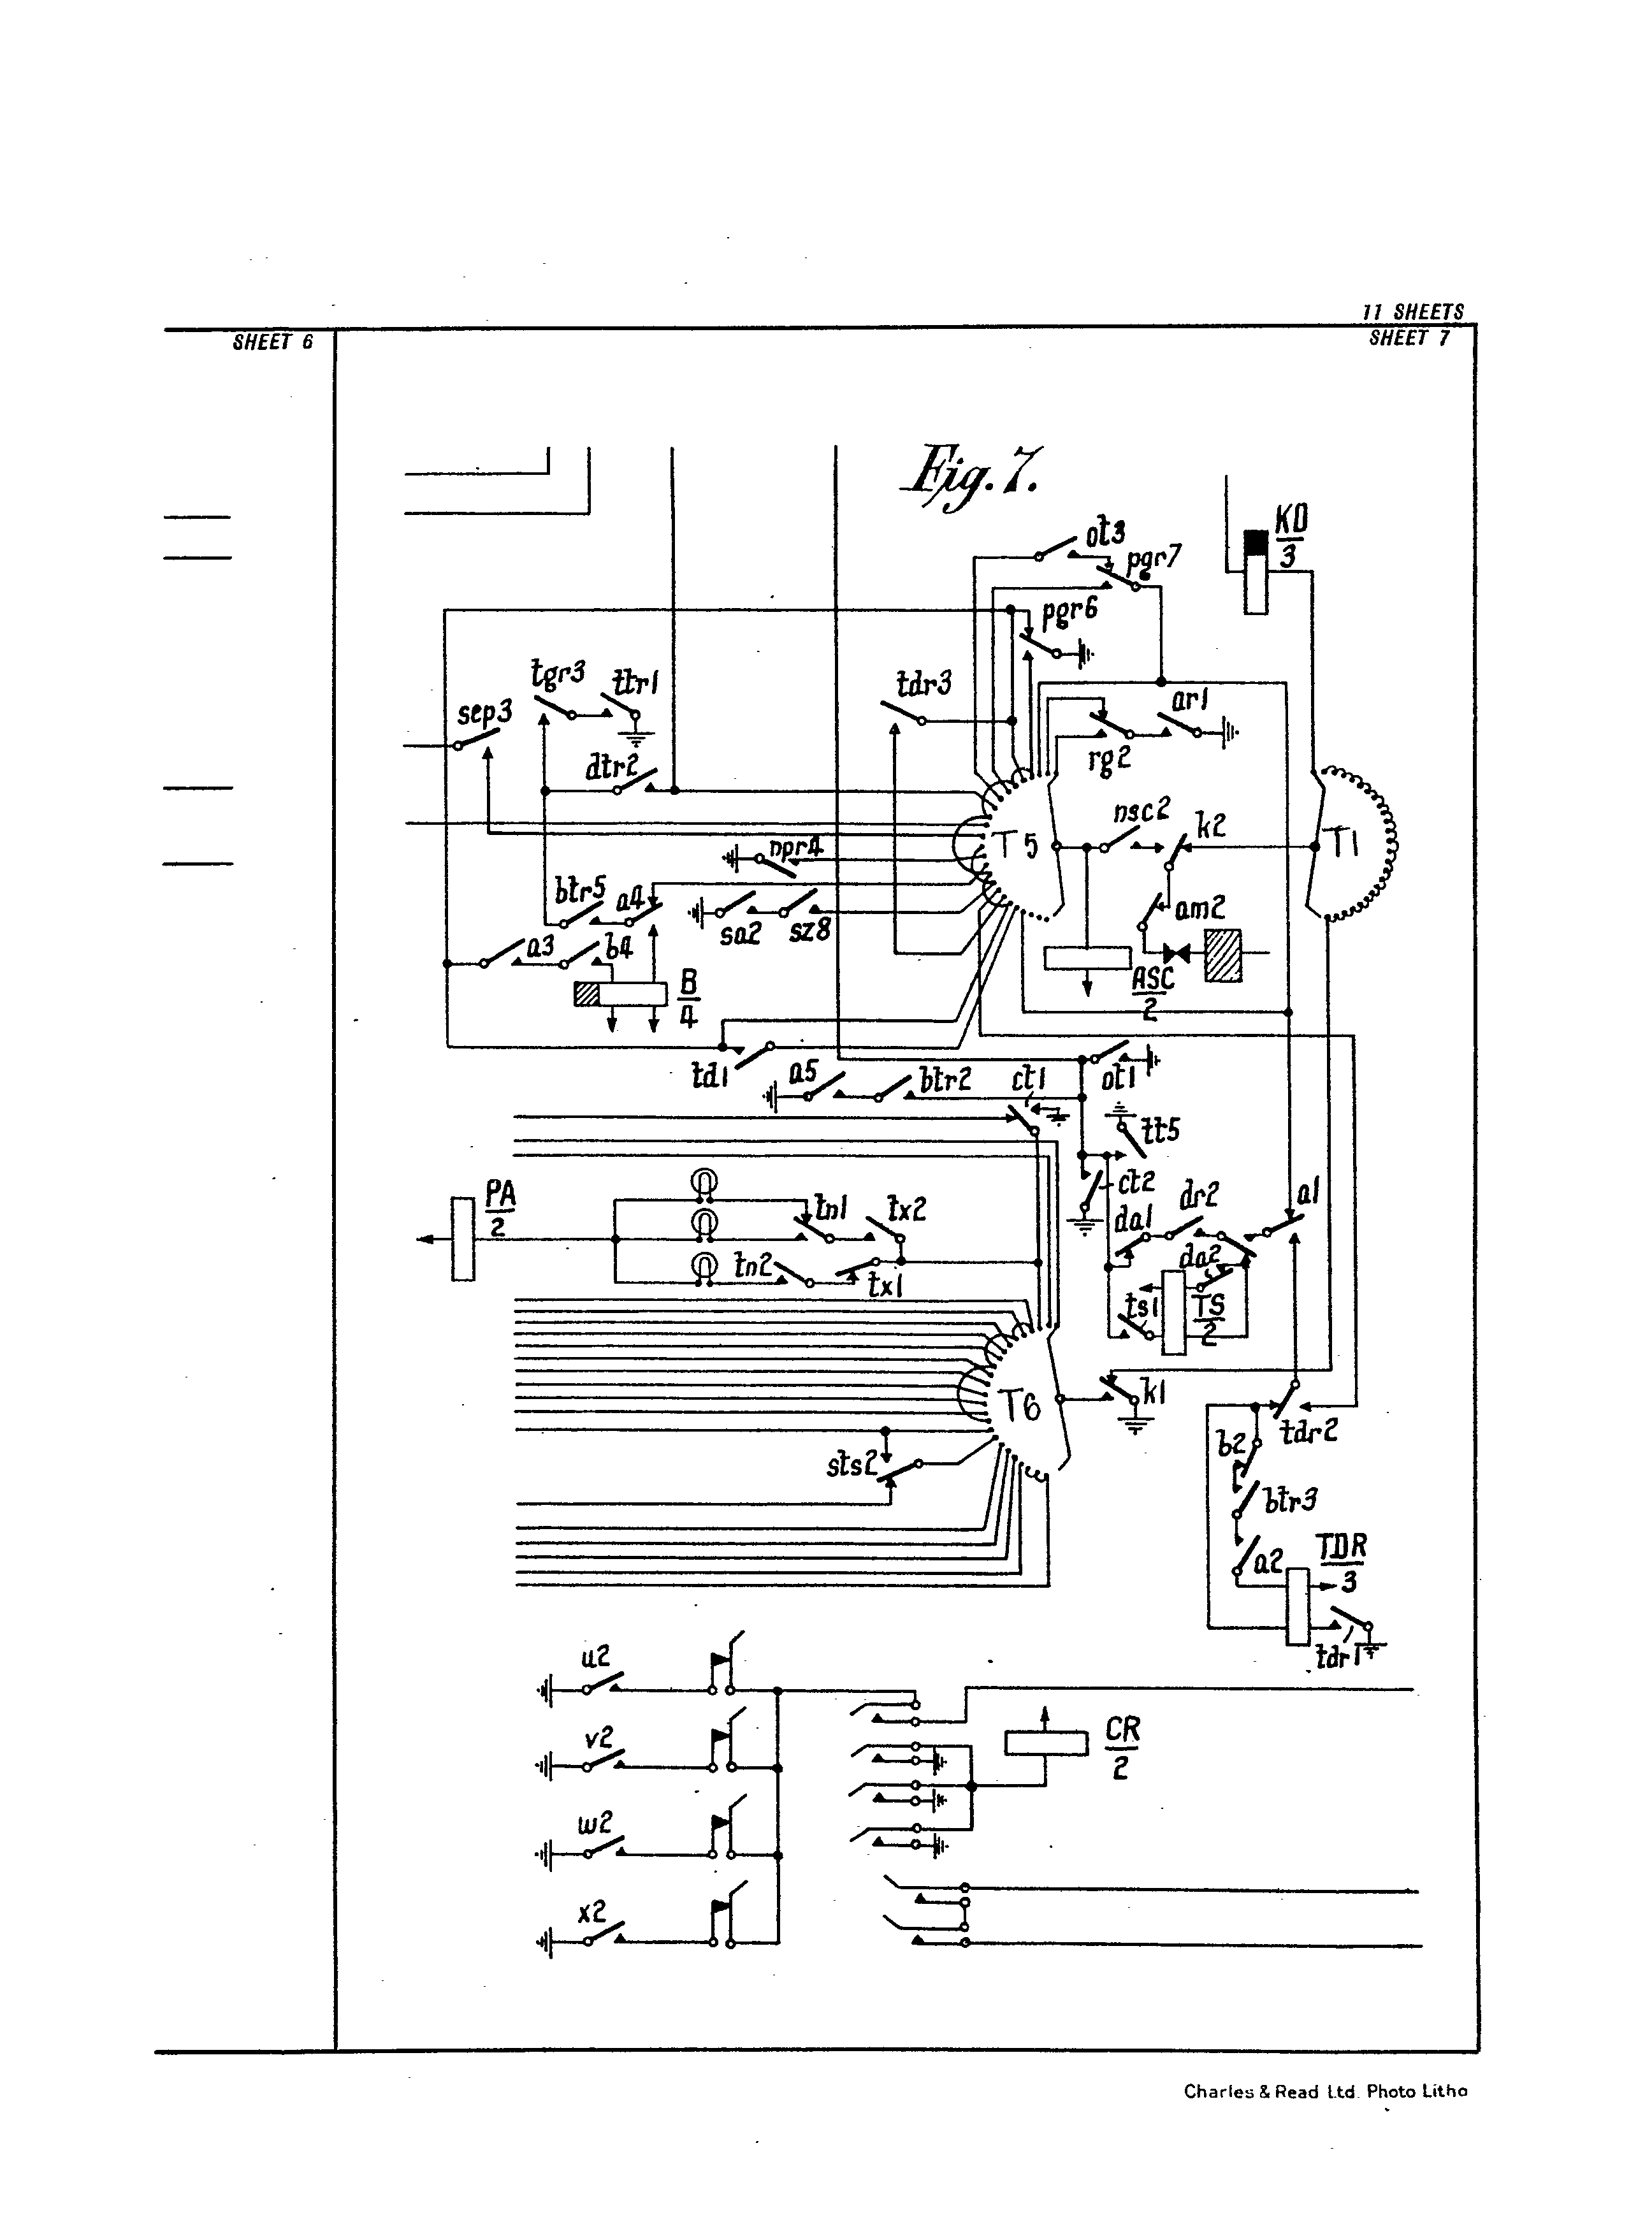 11 SHEETS
SHEET 6
SHEET 7
Fig. 7.
KD
3
ot3
pgr7
pgr6
tgr3
ttr1
tdr3
sep3
ar1
rg2
dtr2
nsc2
k2
T5
T1
npr4
btr5
a4
am2
sa2
sz8
a3
b4
B
4
ASC
2
td1
a5
btr2
ct1
ot1
tt5
PA
2
ct2
tn1
tx2
da1
dr2
a1
tn2
tx1
da2
ts1
TS
2
T6
k1
tdr2
sts2
b2
btr3
a2
TDR
3
tdr1
u2
v2
CR
2
w2
x2
Charles & Read Ltd. Photo Litho